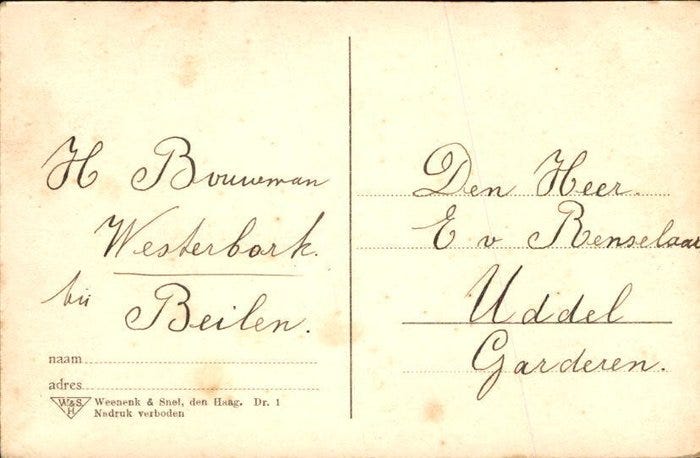 H Bouwman
Westerbork.
bij Beilen.
naam
adres
W&S
H
Weenenk & Snel, den Haag. Dr. 1
Nadruk verboden
Den Heer.
E v Renselaar
Uddel
Garderen.